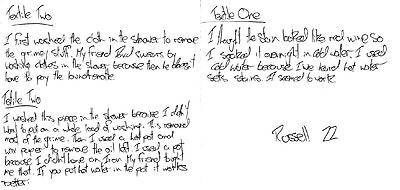 Textile Two
I first washed the cloth in the shower to remove
the grimey stuff. My friend Paul swears by
washing clothes in the shower because then he doesn't
have to pay the laundromate
Textile Two
I washed this piece in the shower because I didn't
want to put on a whole load of washing. This removed
most of the grime. Then I used a hot pot and
wax paper to remove the oil left. I used a pot
because I didn't have an Iron. My friend taught
me that. If you put hot water in the pot it works
better.
Textile One
I thought the stain looked like red wine so
I soaked it overnight in cold water. I used
cold water because I've heard hot water
sets stains. It seemed to work
Russell 22